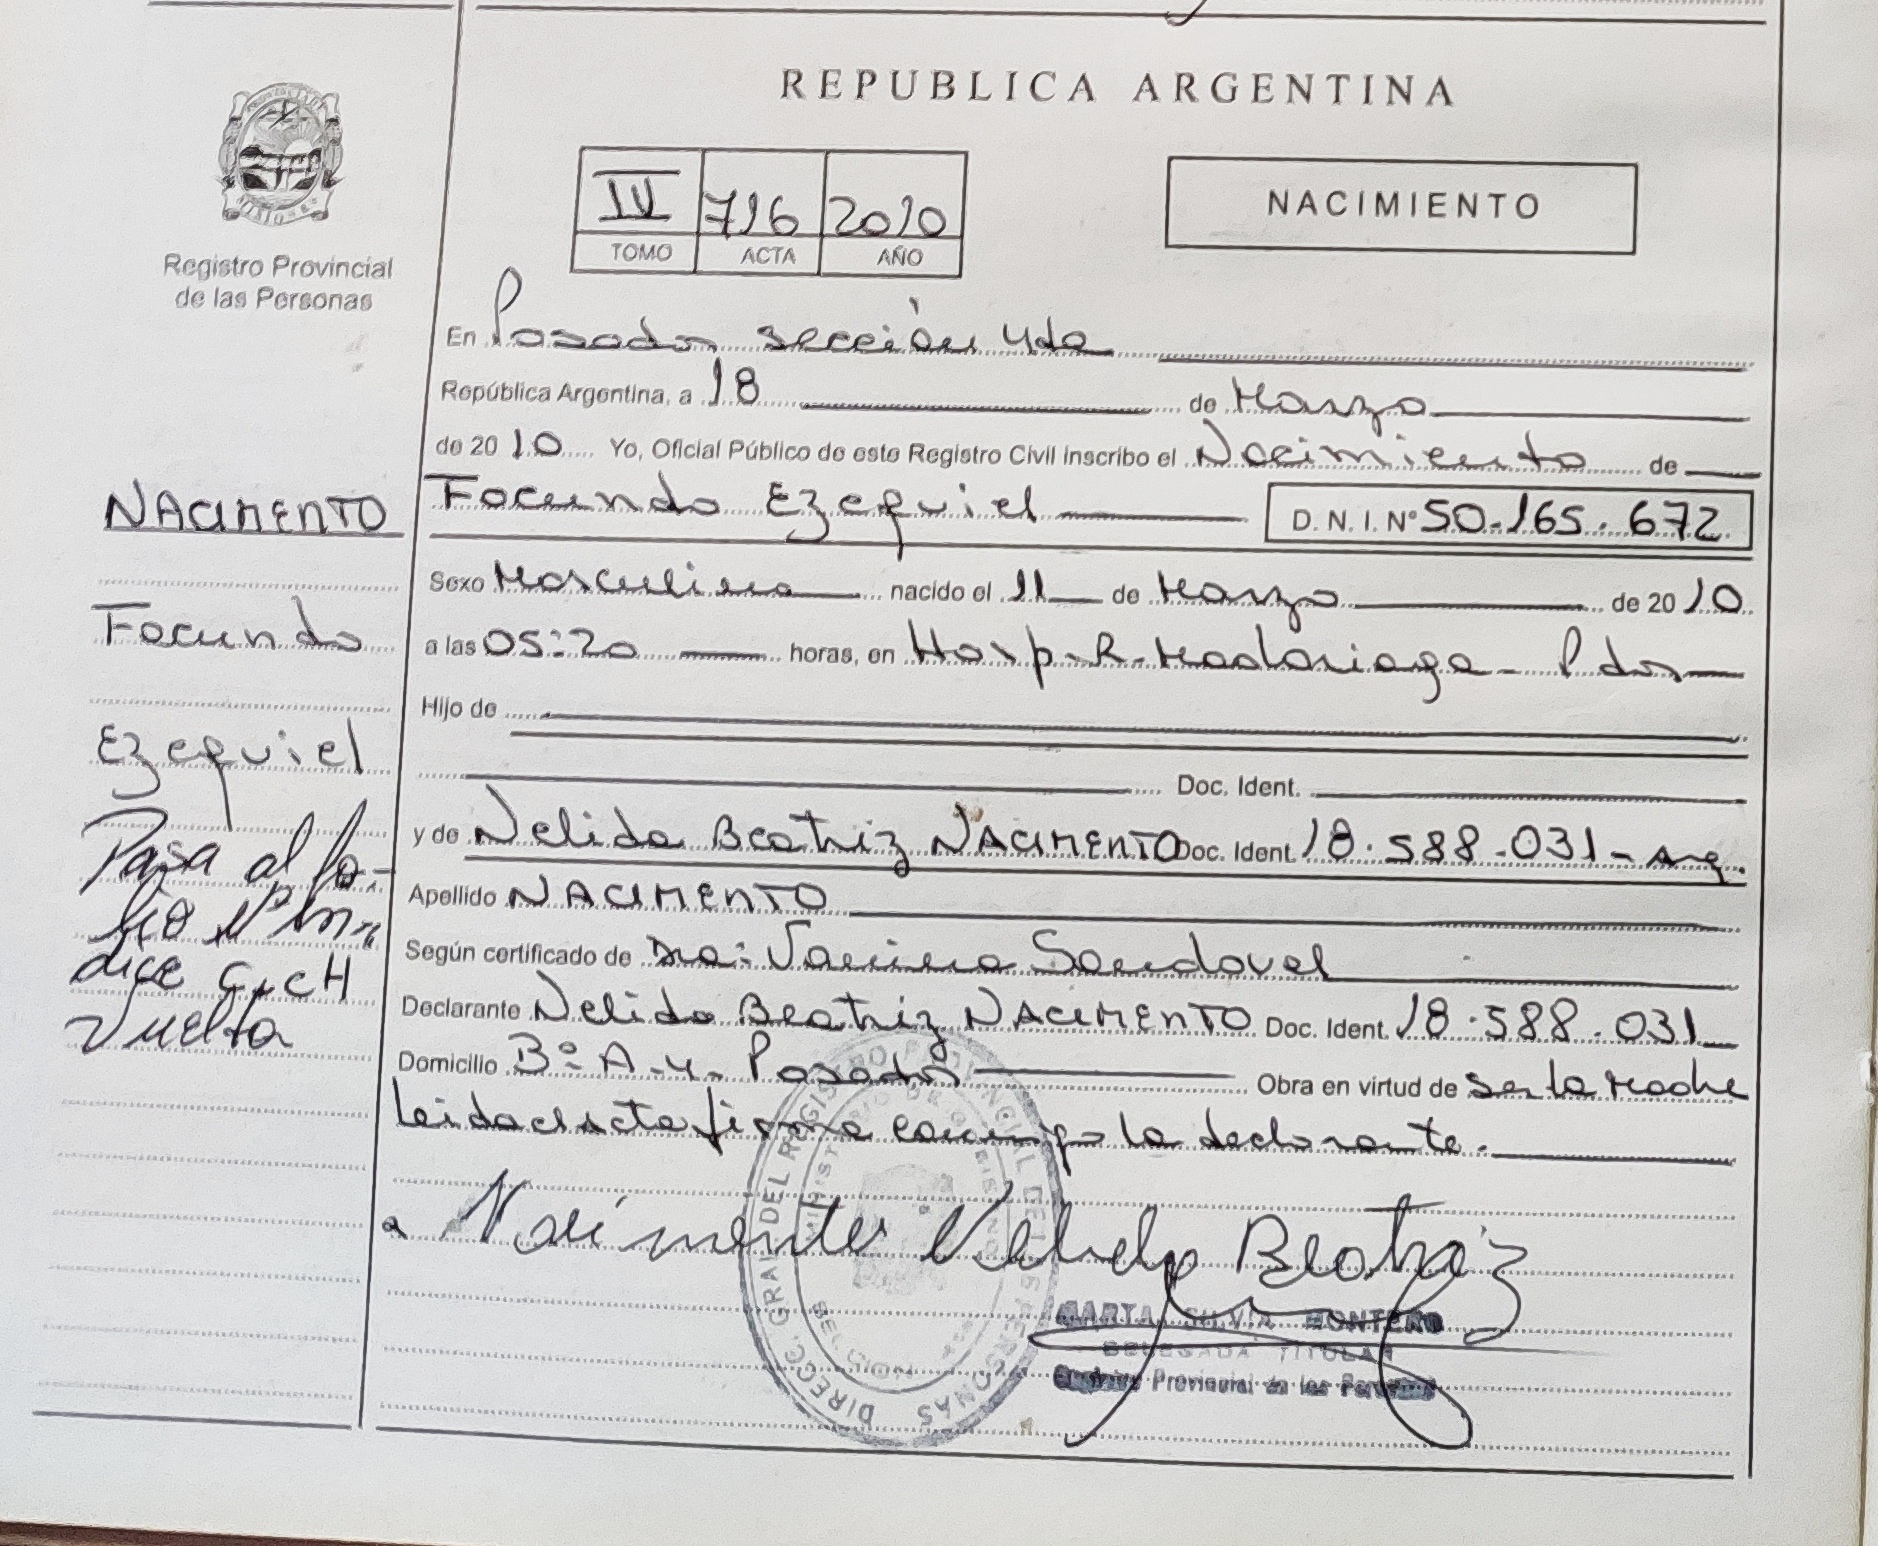 REPUBLICA ARGENTINA
Registro Provincial
de las Personas
IV 716 2010
TOMO ACTA AÑO
NACIMIENTO
En Posadas sección 4da
República Argentina, a 18 de Marzo
de 2010 Yo, Oficial Público de este Registro Civil inscribo el Nacimiento de
Facundo Ezequiel D. N. I. Nº 50.165.672
Sexo Masculino nacido el 11 de Marzo de 2010
a las 05:20 horas, en Hosp. R. Madariaga - Pdas
Hijo de
Doc. Ident.
y de Nelida Beatriz NACIMENTO Doc. Ident. 18.588.031 - Arg.
Apellido NACIMENTO
Según certificado de Dra: Vanina Sandoval
Declarante Nelida Beatriz NACIMENTO Doc. Ident. 18.588.031
Domicilio Bº A-4- Posadas Obra en virtud de ser la Madre
Leida el acta firma conmigo la declarante.
Nelida Beatriz
NACIMENTO
Facundo
Ezequiel
Pasa al fo-
lio Nº
dice C.CH
Vuelta
MARTA SILVIA MONTERO
DELEGADA TITULAR
Registro Provincial de las Personas
DIRECC. GRAL DEL REGISTRO PROVINCIAL DE LAS PERSONAS
MINISTERIO DE GOBIERNO